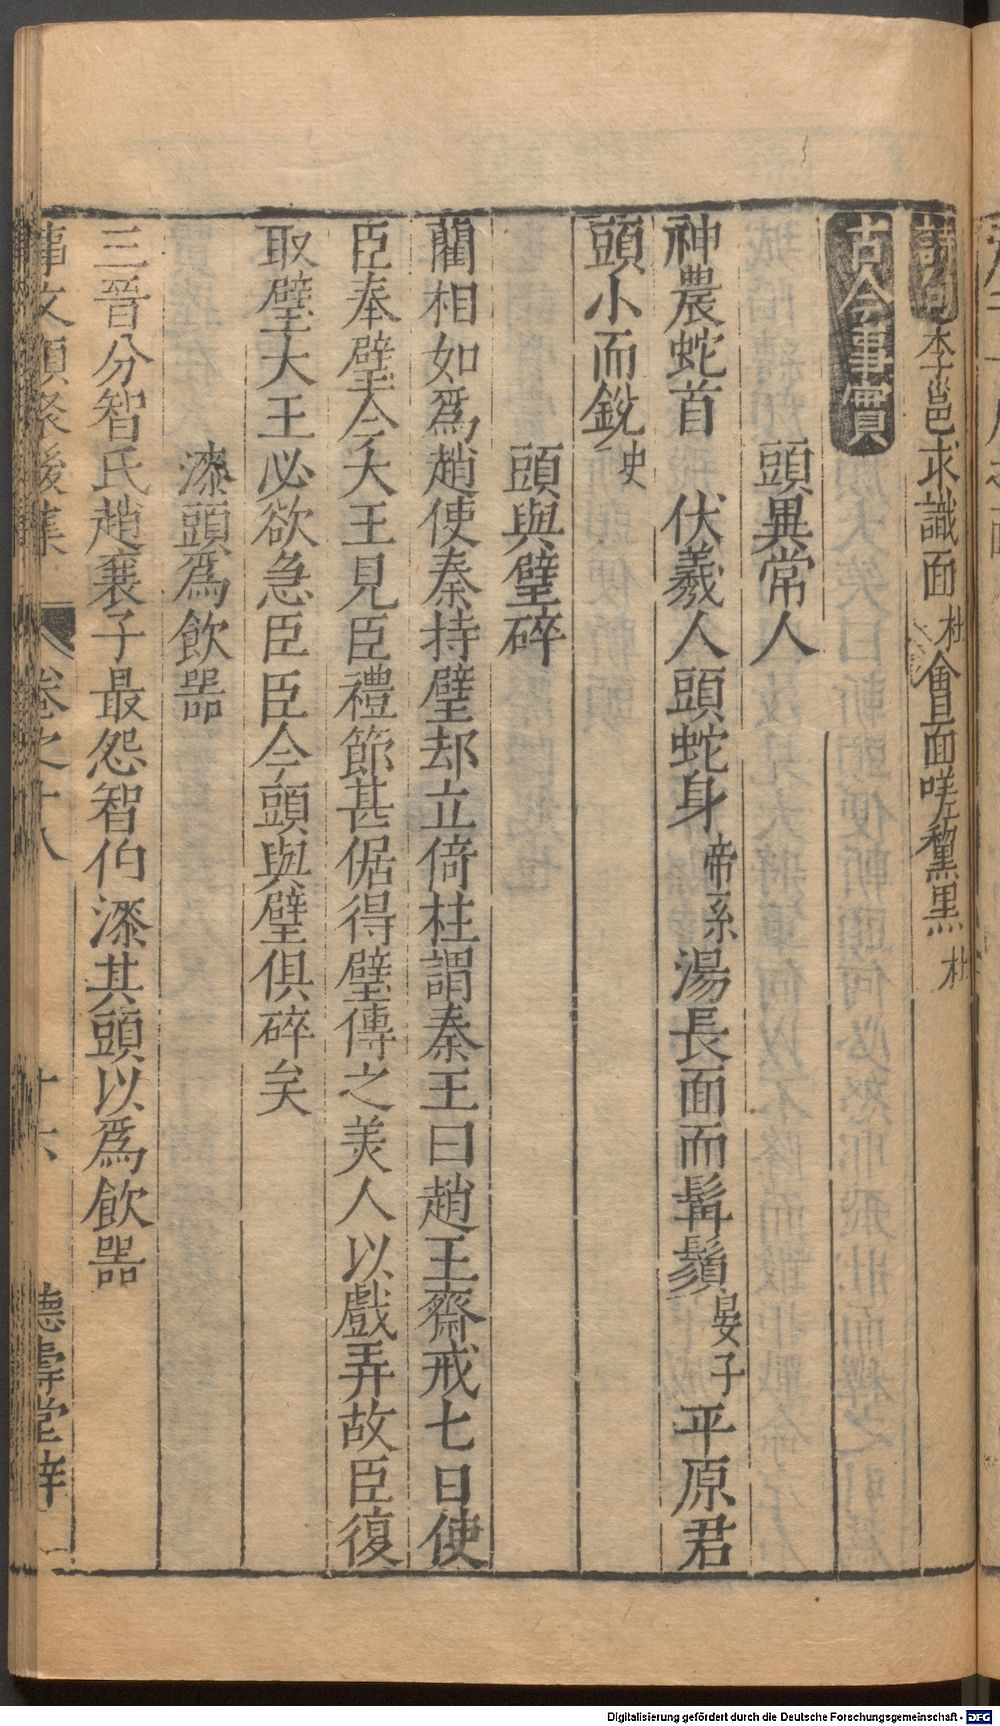 詩句 李邕求識面 杜 會面嗟黧黑 杜
古今事實
頭異常人
神農蛇首 伏羲人頭蛇身 帝系 湯長面而髯鬚 晏子 平原君
頭小而銳 史
頭與璧碎
藺相如爲趙使秦持璧却立倚柱謂秦王曰趙王齋戒七日使
臣奉璧今大王見臣禮節甚倨得璧傳之美人以戲弄故臣復
取璧大王必欲急臣臣今頭與璧俱碎矣
漆頭爲飲噐
三晉分智氏趙襄子最怨智伯漆其頭以爲飲噐
事文類聚後集 卷之十八 十六 德壽堂梓
Digitalisierung gefördert durch die Deutsche Forschungsgemeinschaft - DFG